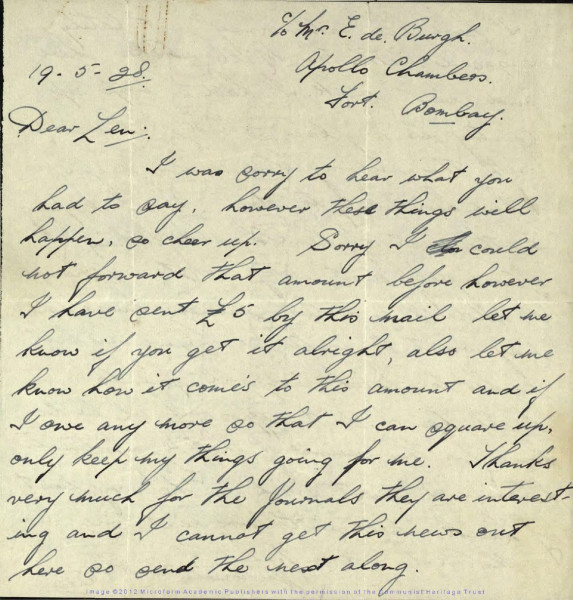 c/o Mr. E. de. Burgh.
Apollo Chambers.
19-5-28.
Fort. Bombay.
Dear Len:
I was sorry to hear what you
had to say, however these things will
happen, so cheer up. Sorry I could
not forward that amount before however
I have sent £5 by this mail let me
know if you get it alright, also let me
know how it come's to this amount and if
I owe any more so that I can square up,
only keep my things going for me. Thanks
very much for the Journals they are interest-
ing and I cannot get this news out
here so send the next along.
Image ©2012 Microform Academic Publishers with the permission of the Communist Heritage Trust